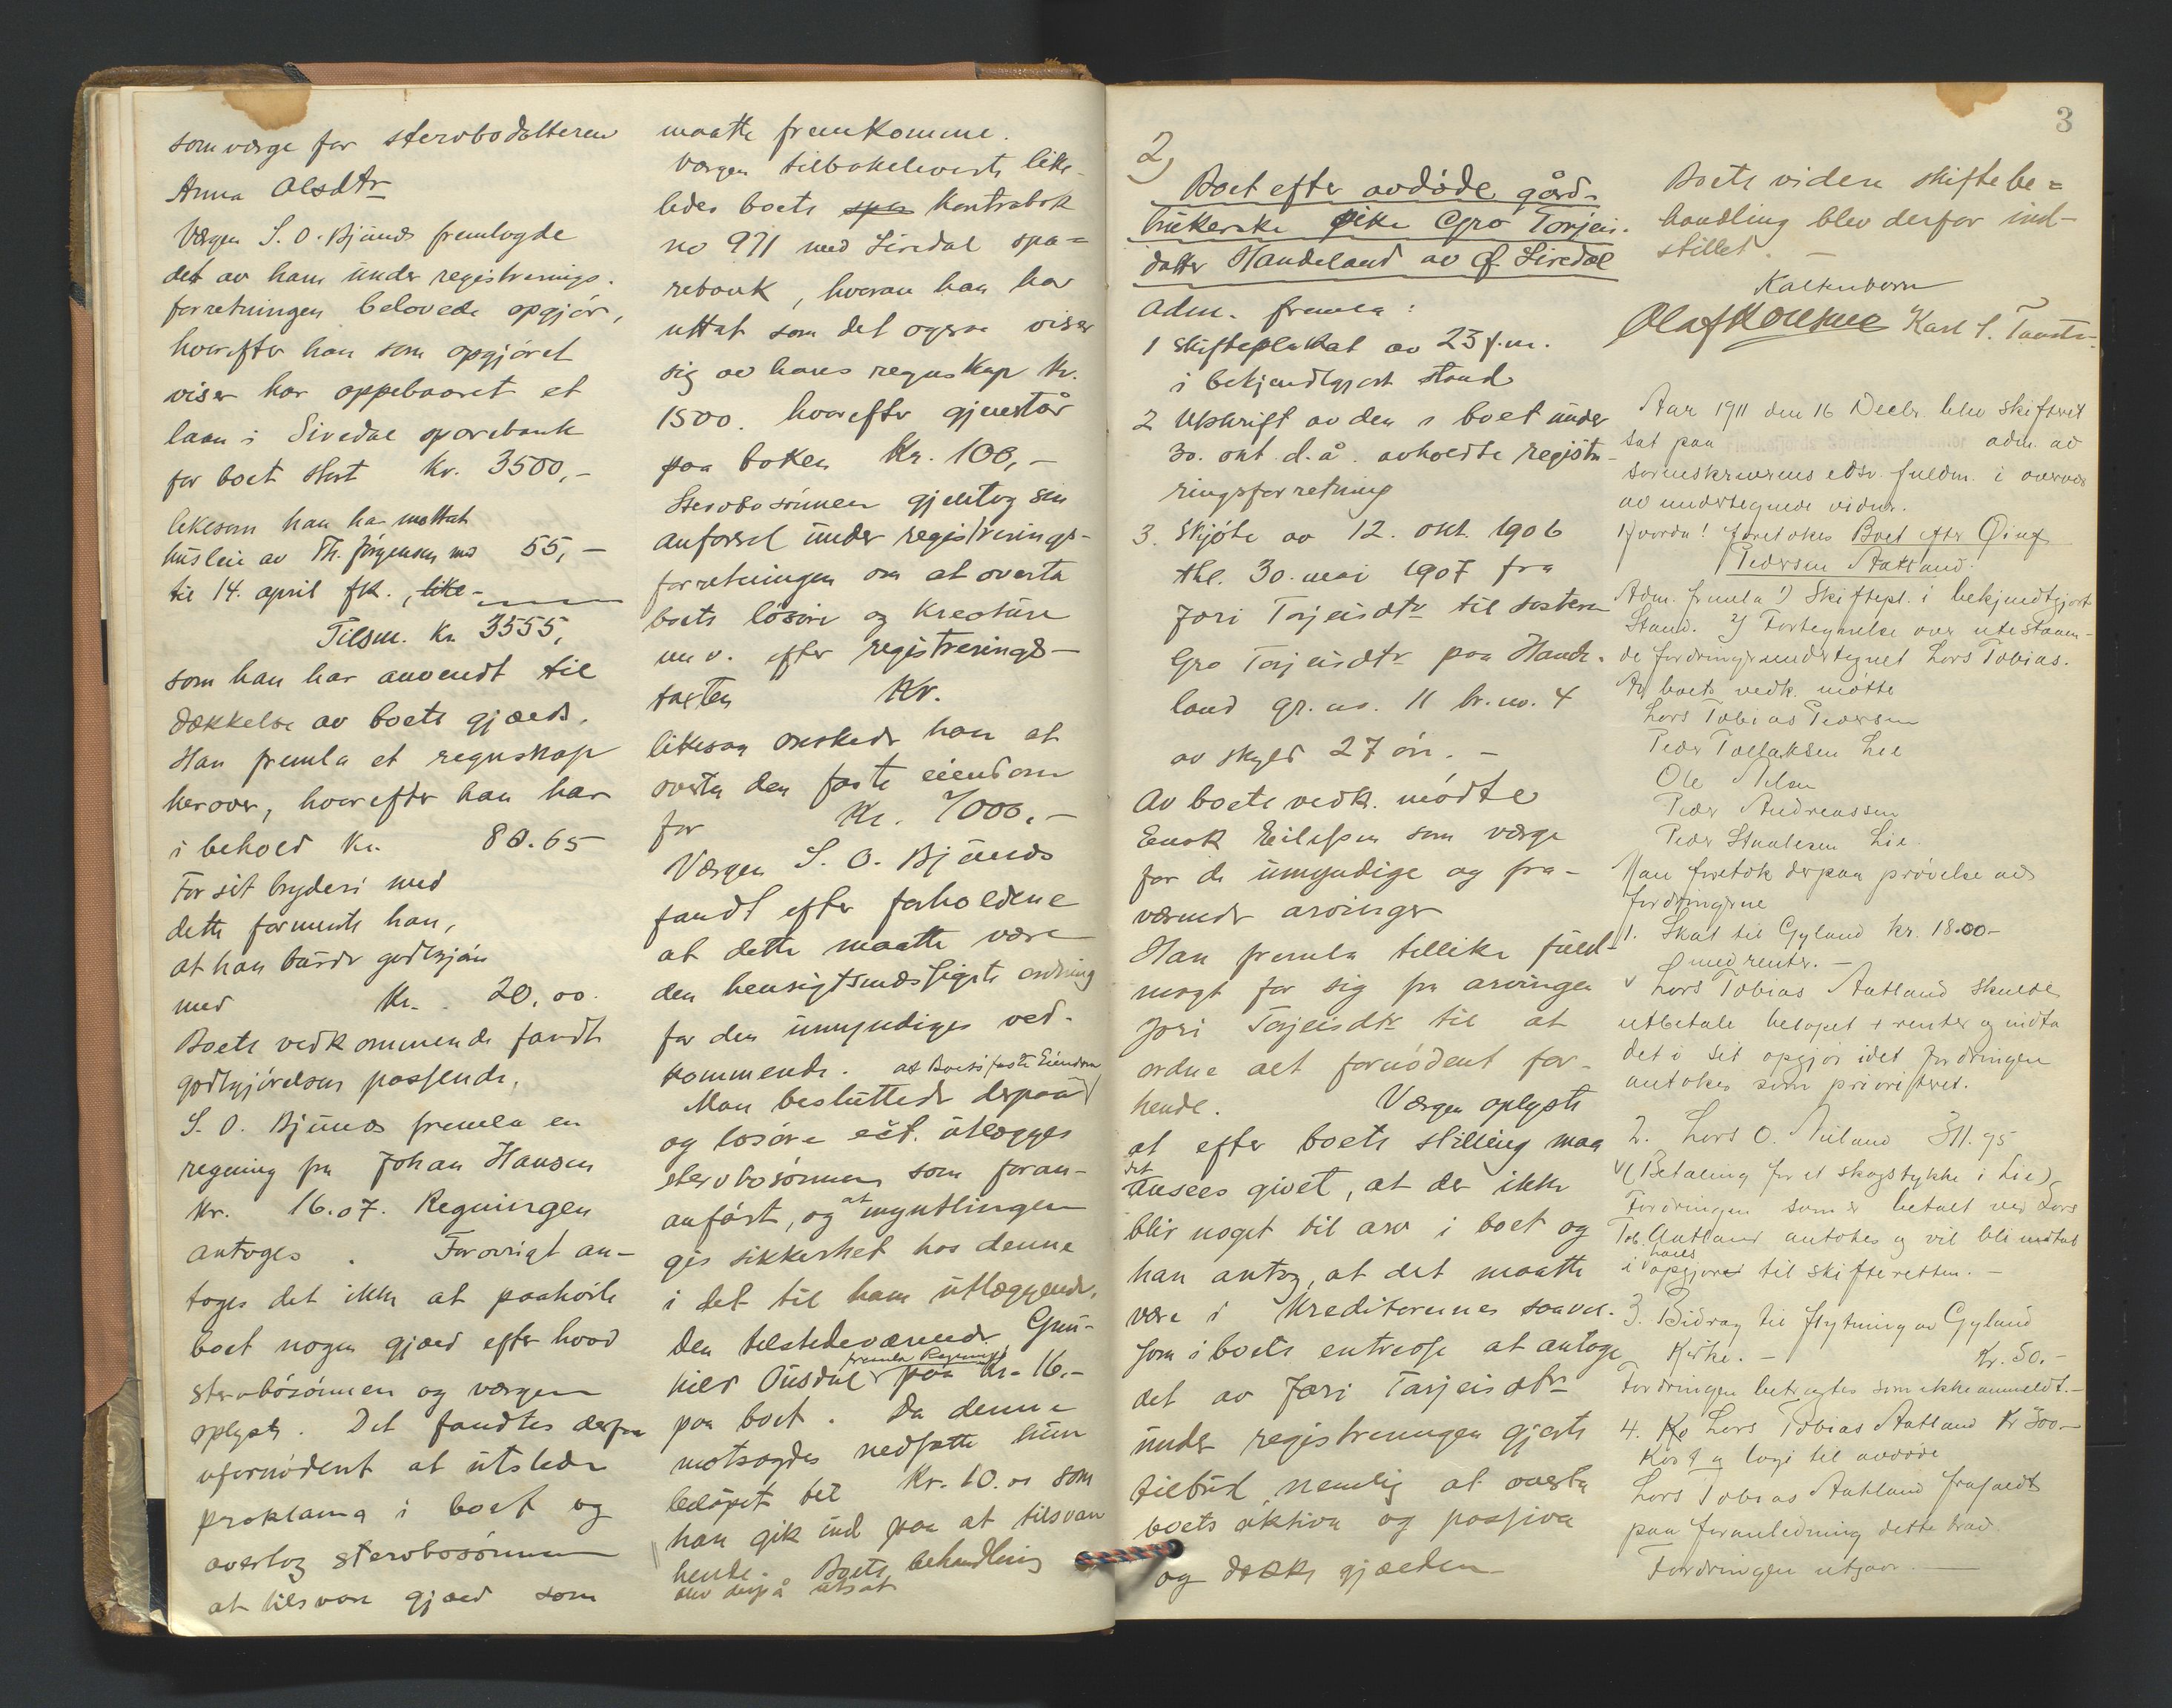 som værge for stervbodatteren
Anna Olsdtr
Værgen S. O. Bjunes fremlagde
det av ham under registrerings-
forretningen belovede opgjør,
hvorefter han som opgjøret
viser har oppebaaret et
laan i Siredal sparebank
for boet stort Kr. 3500,-
likesom han har mottat
husleie av Th. Jørgensen med 55,-
til 14. april fk., like-
Tilsm. Kr 3555,
som han har anvendt til
dækkelse av boets gjæld.
Han fremla et regnskap
herover, hvorefter han har
i behold Kr. 80.65
For sit bryderi med
dette formente han,
at han burde godtgjøres
med Kr. 20.00.
Boets vedkommende fandt
godtgjørelsen passende.
S. O. Bjunes fremla en
regning fra Johan Hansen
Kr. 16.07. Regningen
antoges. Forøvrigt an-
toges det ikke at paahvile
boet nogen gjæld efter hvad
stervbosønnen og værgen
oplyste. Det fandtes derfor
ufornødent at utstede
proklama i boet og
overtog stervbosønnen
at tilsvare gjæld som
maatte fremkomme.
Værgen tilbakeleverte like-
ledes boets spa kontrabok
no 971 med Siredal spa=
rebank, hvorav han har
uttat som det ogsaa viser
sig av hans regnskap kr.
1500. hvorefter gjenstår
paa boken Kr. 100,-
Stervbosønnen gjentog sin
anførsel under registrerings-
forretningen om at overta
boets løsøre og kreature
m. v. efter registrerings-
taxten Kr.
likesaa ønskede han at
overta den faste eiendom
for Kr. 7000,-
Værgen S. O. Bjunes
fandt efter forholdene
at dette maatte være
den hensigtsmæssigste ordning
for den umyndiges ved-
kommende. at Boets faste Eiendom
Man besluttede derpaa
og løsøre ect. utlægges
stervbosønnen som foran-
anført, og at myntlingen
gis sikkerhet hos denne
i det til ham utlæggende.
Den tilstedeværende Gun-
hild Ousdal fremla Regning paa Kr. 16.-
paa boet. Da denne
motsagdes nedsatte hun
beløpet til Kr. 10.00 som
han gik ind paa at tilsvare
hende. Boets behandling
blev derpå utsat
3
2)
Boet efter avdøde gård-
brukerske pike Gro Torjeis-
datter Handeland av Ø. Siredal
Adm. fremla:
1 Skifteplakat av 23 f.m.
i bekjendtgjort stand
2 Utskrift av den i boet under
30. okt. d.å. avholdte registre-
ringsforretning
3. Skjøte av 12. okt. 1906
thl. 30. mai 1907 fra
Jori Torjeisdtr til søsteren
Gro Torjeisdtr paa Hande-
land gr. no. 11 br. no. 4
av skyld 27 øre. -
Av boets vedk. mødte
Enok Eilefsen som værge
for de umyndige og fra-
værende arvinger
Han fremla tillike fuld-
magt for sig fra arvingen
Jori Torjeisdtr til at
ordne alt fornødent for
hende. Værgen oplyste
at efter boets stilling maa
det ansees givet, at der ikke
blir noget til arv i boet og
han antog, at det maatte
være i kreditorernes saavel
som i boets interesse at antage
det av Jori Torjeisdtr
under registreringen gjorte
tilbud, nemlig at overta
boets aktiva og passiva
og dække gjælden
Boets videre skiftebe=
handling blev derfor ind-
stillet. -
Kaltenborn
Karl S. Tonstad
Aar 1911 den 16 Decbr. blev skifteret
sat paa Flekkefjords Sorenskriverkontor adm. av
sorenskriverens edsv. fuldm. i overvær
av undertegnede vidner.
Hvorda! foretokes Boet efter
Pedersen Aatland.
Adm. fremla 1) Skiftepl. i bekjendtgjort
Stand. 2) Fortegnelse over utestaaen-
de fordringer undertegnet Lars Tobias.
Av boets vedk. møtte
Lars Tobias Pedersen
Peder Tollaksen Lie
Ole Nilsen
Peder Andreassen
Peder Staalesen Lie.
Man foretok derpaa prøvelse av
fordringerne
1. Skat til Gyland kr. 18.00-
med renter. -
Lars Tobias Aatland skulde
utbetale beløpet + renter og indta
det i sit opgjør idet fordringen
antokes som prioritert.
2. Lars O. Niland 311.95
(Betaling for et skogstykke i Lie)
Fordringen som er betalt ved Lars
Tob. Aatland antokes og vil bli indtat
i hans opgjøret til skifteretten. -
3. Bidrag til flytning av Gyland
Kirke. - Kr. 50.-
Fordringen betragtes som ikke anmeldt.-
4. Lars Tobias Aatland Kr 300-
Kost og logi til avdøde
Lars Tobias Aatland frafaldt
paa foranledning dette krav.
Fordringen utgaar.